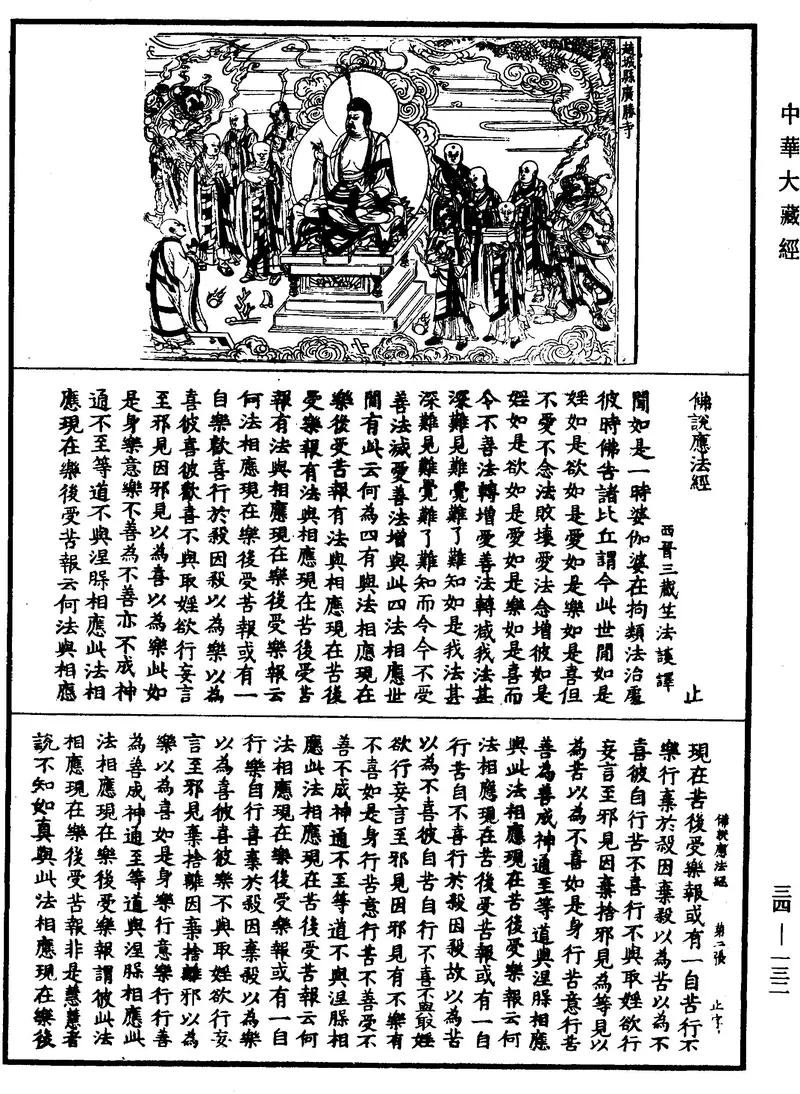 中華大藏經
趙城縣廣勝寺
佛說應法經
止
西晉三藏竺法護譯
聞如是一時婆伽婆在拘類法治處
彼時佛告諸比丘謂今此世間如是
婬如是欲如是愛如是樂如是喜但
不愛不念法敗壞愛法念增彼如是
婬如是欲如是愛如是樂如是喜而
今不善法轉增愛善法轉減我法甚
深難見難覺難了難知如是我法甚
深難見難覺難了難知而今令不受
善法減愛善法增與此四法相應世
間有此云何為四有與法相應現在
樂後受苦報有法與相應現在苦後
受樂報有法與相應現在苦後受苦
報有法與相應現在樂後受樂報云
何法相應現在樂後受苦報或有一
自樂歡喜行於殺因殺以為樂以為
喜彼喜彼歡喜不與取婬欲行妄言
至邪見因邪見以為喜以為樂此如
是身樂意樂不善為不善亦不成神
通不至等道不與涅槃相應此法相
應現在樂後受苦報云何法與相應
現在苦後受樂報或有一自苦行不
樂行棄於殺因棄殺以為苦以為不
喜彼自行苦不喜行不與取婬欲行
妄言至邪見因棄捨邪見為等見以
為苦以為不喜如是身行苦意行苦
善為善成神通至等道與涅槃相應
與此法相應現在苦後受樂報云何
法相應現在苦後受苦報或有一自
行苦自不喜行於殺因殺故以為苦
以為不喜彼自苦自行不喜不與取婬
欲行妄言至邪見因邪見有不樂有
不喜如是身行苦意行苦不善受不
善不成神通不至等道不與涅槃相
應此法相應現在苦後受苦報云何
法相應現在樂後受樂報或有一自
行樂自行喜棄於殺因棄殺以為樂
以為喜彼喜彼樂不與取婬欲行妄
言至邪見棄捨離因棄捨離邪以為
樂以為喜如是身樂行意樂行行善
為善成神通至等道與涅槃相應此
法相應現在樂後受樂報謂彼此法
相應現在樂後受苦報非是慧慧者
說不知如真與此法相應現在樂後
佛說應法經　第二張　止字
三四—一三二